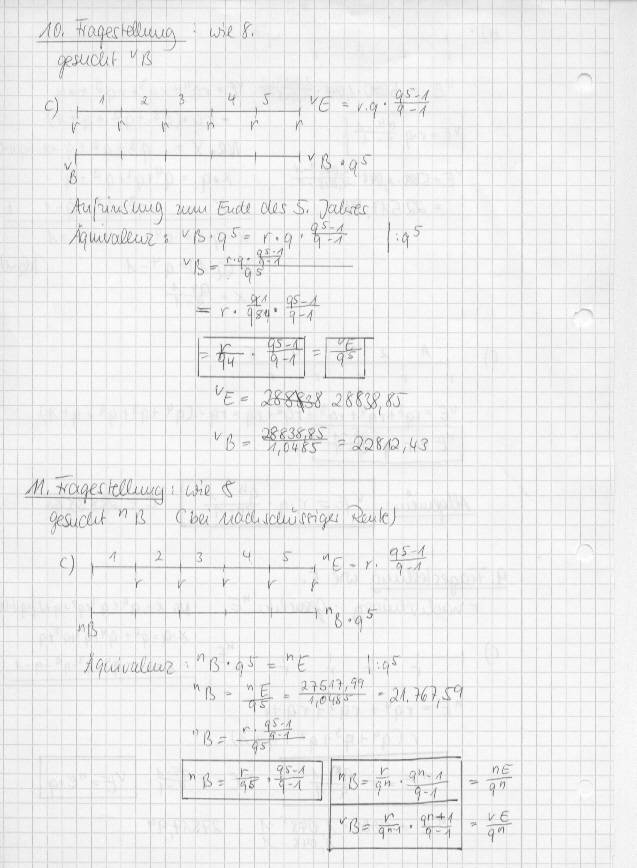 10. Fragestellung: wie 8.
gesucht ᵛB
c) 1 2 3 4 5 ᵛE = r·q · (q⁵-1)/(q-1)
r r r r r r
ᵛB ᵛB · q⁵
Aufzinsung zum Ende des 5. Jahres
Äquivalenz: ᵛB · q⁵ = r · q · (q⁵-1)/(q-1) |:q⁵
ᵛB = (r·q·(q⁵-1)/(q-1))/q⁵
= r · · (q⁵-1)/(q-1)
= r/q⁴ · (q⁵-1)/(q-1) = ᵛE/q⁵
ᵛE = 28838,85
ᵛB = 28838,85/1,048⁵ = 22812,43
11. Fragestellung: wie 8
gesucht ⁿB (bei nachschüssiger Rente)
c) 1 2 3 4 5 ⁿE = r · (q⁵-1)/(q-1)
r r r r r
ⁿB ⁿB · q⁵
Äquivalenz: ⁿB · q⁵ = ⁿE |:q⁵
ⁿB = ⁿE/q⁵ = 27517,99/1,048⁵ = 21.767,59
ⁿB = (r · (q⁵-1)/(q-1))/q⁵
ⁿB = r/q⁵ · (q⁵-1)/(q-1) ⁿB = r/qⁿ · (qⁿ-1)/(q-1) = ⁿE/qⁿ
ᵛB = r/qⁿ⁻¹ · (qⁿ-1)/(q-1) = ᵛE/qⁿ